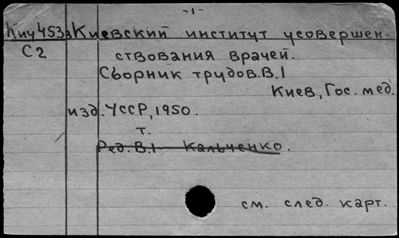 -1-
Киу453з Киевский институт усовершен
С2 ствования врачей.
Сборник трудов.В.1
Киев, Гос. мед.
изд. УССР, 1950.
т.
Ред. В.1 Кальченко.
см. след. карт.